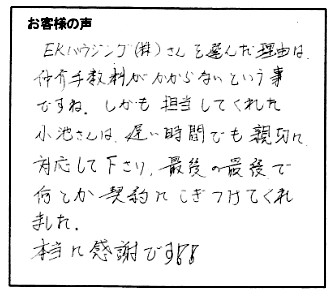 お客様の声
EKハウジング(株)さんを選んだ理由は、
仲介手数料がかからないという事
ですね。しかも担当してくれた
小池さんは、遅い時間でも親切に
対応して下さり、最後の最後で
何とか契約にこぎつけてくれ
ました。
本当に感謝です!!